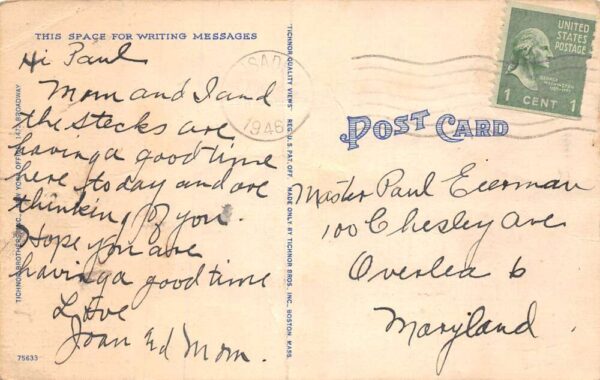 THIS SPACE FOR WRITING MESSAGES
Hi Paul
Mom and I and
the Stecks are
having a good time
here today and are
thinking of you.
Hope you are
having a good time
Love
Joan Ed Mom.
75633
TICHNOR BROTHERS, INC., NEW YORK OFFICE, 1472 BROADWAY
"TICHNOR QUALITY VIEWS" REG. U.S. PAT. OFF. MADE ONLY BY TICHNOR BROS., INC., BOSTON, MASS.
1946
POST CARD
UNITED
STATES
POSTAGE
GEORGE
WASHINGTON
1 CENT 1
Master Paul Eierman
100 Chesley Ave
Overlea 6
Maryland